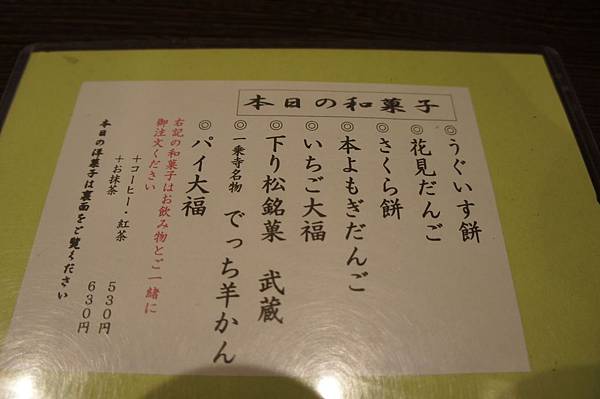 本日の和菓子
◎うぐいす餅
◎花見だんご
◎さくら餅
◎本よもぎだんご
◎いちご大福
◎下り松銘菓 武蔵
◎一乗寺名物 でっち羊かん
◎パイ大福
右記の和菓子はお飲み物とご一緒に
御注文ください
+コーヒー・紅茶 530円
+お抹茶 630円
本日の洋菓子は裏面をご覧ください